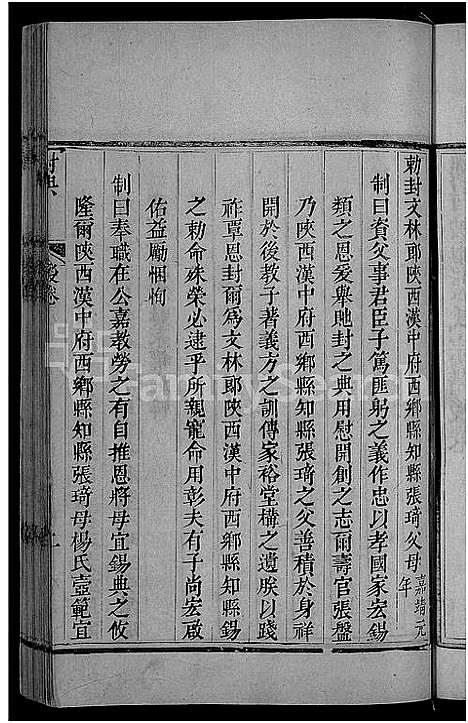 勅封文林郎陝西漢中府西鄉縣知縣張琦父母嘉靖元年
制曰資父事君臣子篤匪躬之義作忠以孝國家宏錫
類之恩爰舉貤封之典用慰開創之志爾壽官張盤
乃陝西漢中府西鄉縣知縣張琦之父善積於身祥
開於後教子著義方之訓傳家裕堂構之遺朕以踐
祚覃恩封爾爲文林郎陝西漢中府西鄉縣知縣錫
之勅命殊榮必逮乎所親寵命用彰夫有子尚宏啟
佑益勵悃恂
制曰奉職在公嘉教勞之有自推恩將母宜錫典之攸
隆爾陝西漢中府西鄉縣知縣張琦母楊氏壼範宜
封典 後卷 上